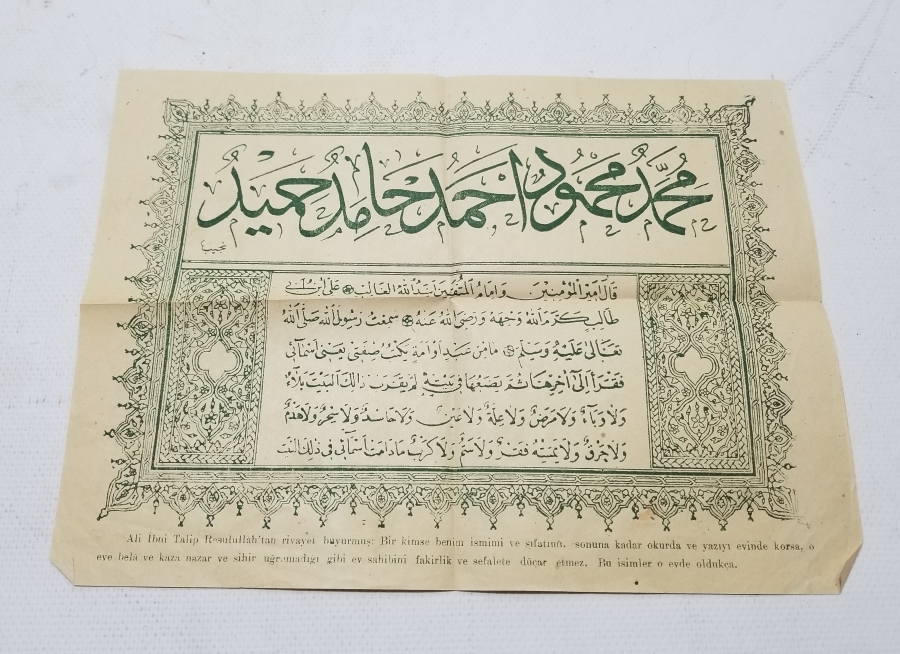 محمد محمود احمد حامد حميد
نجيب
قال امير المؤمنين وامام المتقين اسد الله الغالب على ابن ابى
طالب كرم الله وجهه ورضى الله عنه سمعت رسول الله صلى الله
تعالى عليه وسلم ما من عبد او امة يكتب صفتى يعنى اسمائى
فقرأ الى آخرها ثم يضعها فى بيته لم يقرب ذالك البيت بلاء
ولا وباء ولا مرض ولا علة ولا عين ولا حاسد ولا سحر ولا هدم
ولا حرق ولا يمسه فقر ولا سم ولا كرب مادامت اسمائى فى ذلك البيت
Ali İbni Talip Resulullah'tan rivayet buyurmuş: Bir kimse benim ismimi ve sıfatımı, sonuna kadar okurda ve yazıyı evinde korsa, o
eve belâ ve kaza nazar ve sihir uğramadığı gibi ev sahibini fakirlik ve sefalete düçar etmez. Bu isimler o evde oldukça.